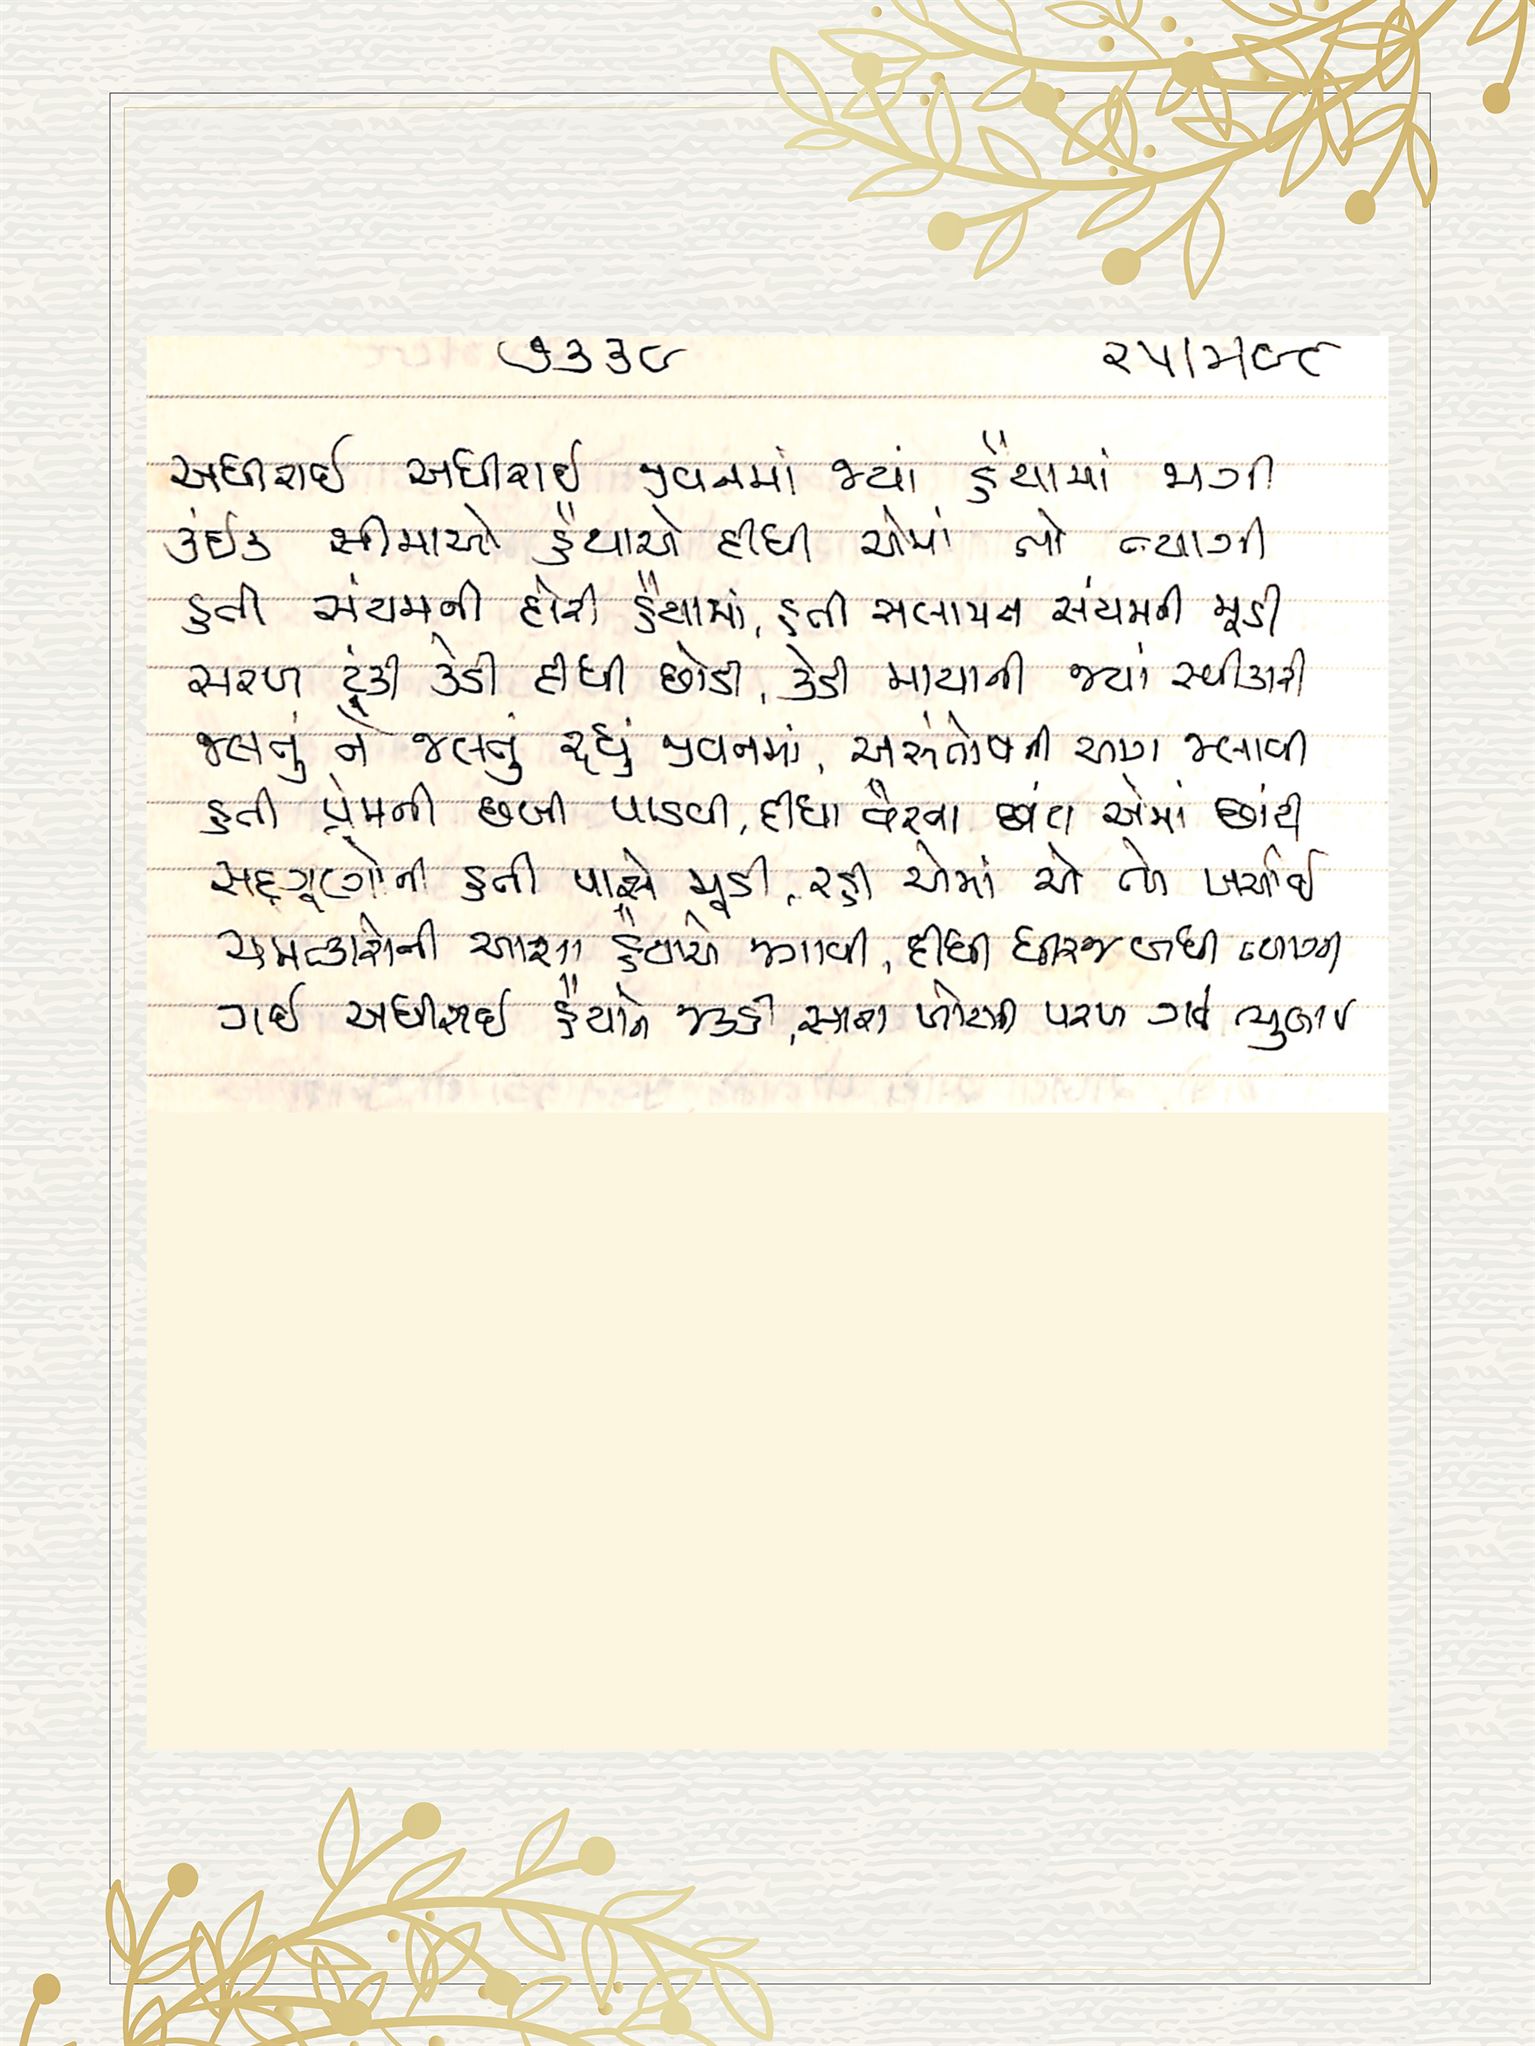 ૭૩૩૮ ૨૫/૫/૯૮
અધીરાઈ અધીરાઈ જીવનમાં જ્યાં હૈયામાં જાગી
કંઈક સીમાઓ હૈયાએ દીધી એમાં તો ત્યાગી
હતી સંયમની દોરી હૈયામાં, હતી સલામત સંયમની મૂડી
સરળ ટૂંકી કેડી દીધી છોડી, કેડી માયાની જ્યાં સ્વીકારી
જલનું ને જલનું રહ્યું જીવનમાં, અસંતોષની આગ જલાવી
હતી પ્રેમની છબી પાડવી, દીધા વૈરના છાંટા એમાં છાંટી
સદ્ગૂણોની હતી પાસે મૂડી, રહી એમાં એ તો ખર્ચાઈ
ચમત્કારોની આશા હૈયાએ જગાવી, દીધી ધીરજ બધી ત્યાગી
ગઈ અધીરાઈ હૈયાને જકડી, સારા ખોટાની પરખ ગઈ ભુલાઈ